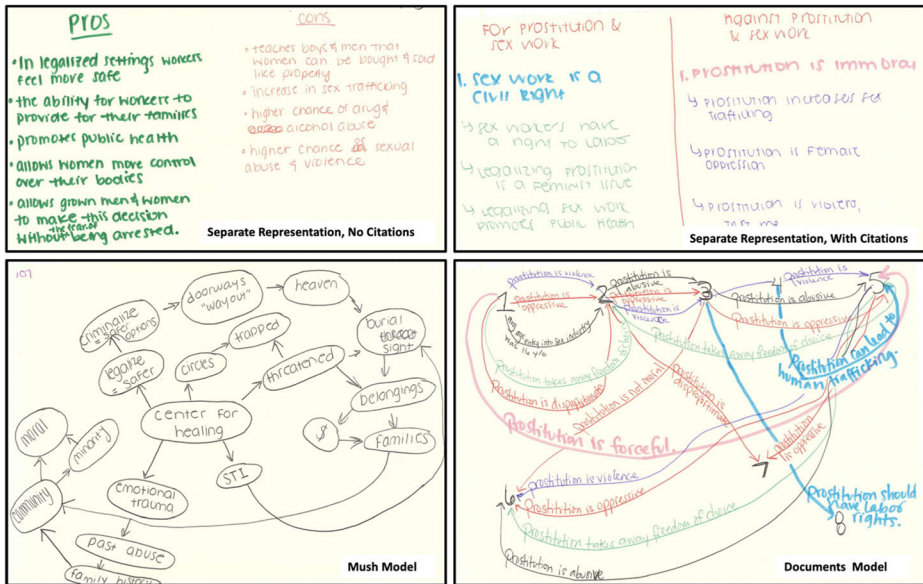 Pros
• In legalized settings workers
feel more safe
• the ability for workers to
provide for their families
• promotes public health
• allows women more control
over their bodies
• allows grown men & women
to make this decision
the fear of
without being arrested.
cons
• teaches boys & men that
women can be bought & sold
like property
• increase in sex trafficking
• higher chance of drug &
alcohol abuse
• higher chance of sexual
abuse & violence
Separate Representation, No Citations
FOR Prostitution &
sex work
1. sex work is a
civil right
↳ sex workers have
a right to labor
↳ Legalizing prostitution
is a feminist issue
↳ Legalizing sex work
promotes Public Health
Against Prostitution
& sex work
1. Prostitution is immoral
↳ Prostitution increases sex
trafficking
↳ Prostitution is Female
oppression
↳ Prostitution is violent,
Separate Representation, With Citations
107
doorways
"way out"
heaven
criminalize
= safer options
trapped
burial
sight
legalize
= safer
circles
threatened
belongings
center for
healing
$
Families
moral
minority
STI
emotional
trauma
community
past abuse
family history
Mush Model
Prostitution is violence
Prostitution is abusive
Prostitution is violence
1
Prostitution is oppressive
2
Prostitution is oppressive
3
4
5
Prostitution is violence
Prostitution is abusive
Prostitution is oppressive
Prostitution takes away freedom of choice
Prostitution takes away freedom of choice
Prostitution can lead to
human trafficking.
Prostitution is disproportionate
Prostitution is not moral
Prostitution is disproportionate
Prostitution is forceful.
Prostitution is oppressive
7
6
Prostitution is violence
Prostitution is oppressive
Prostitution should
have labor
rights.
8
Prostitution takes away freedom of choice
Prostitution is abusive
Documents Model